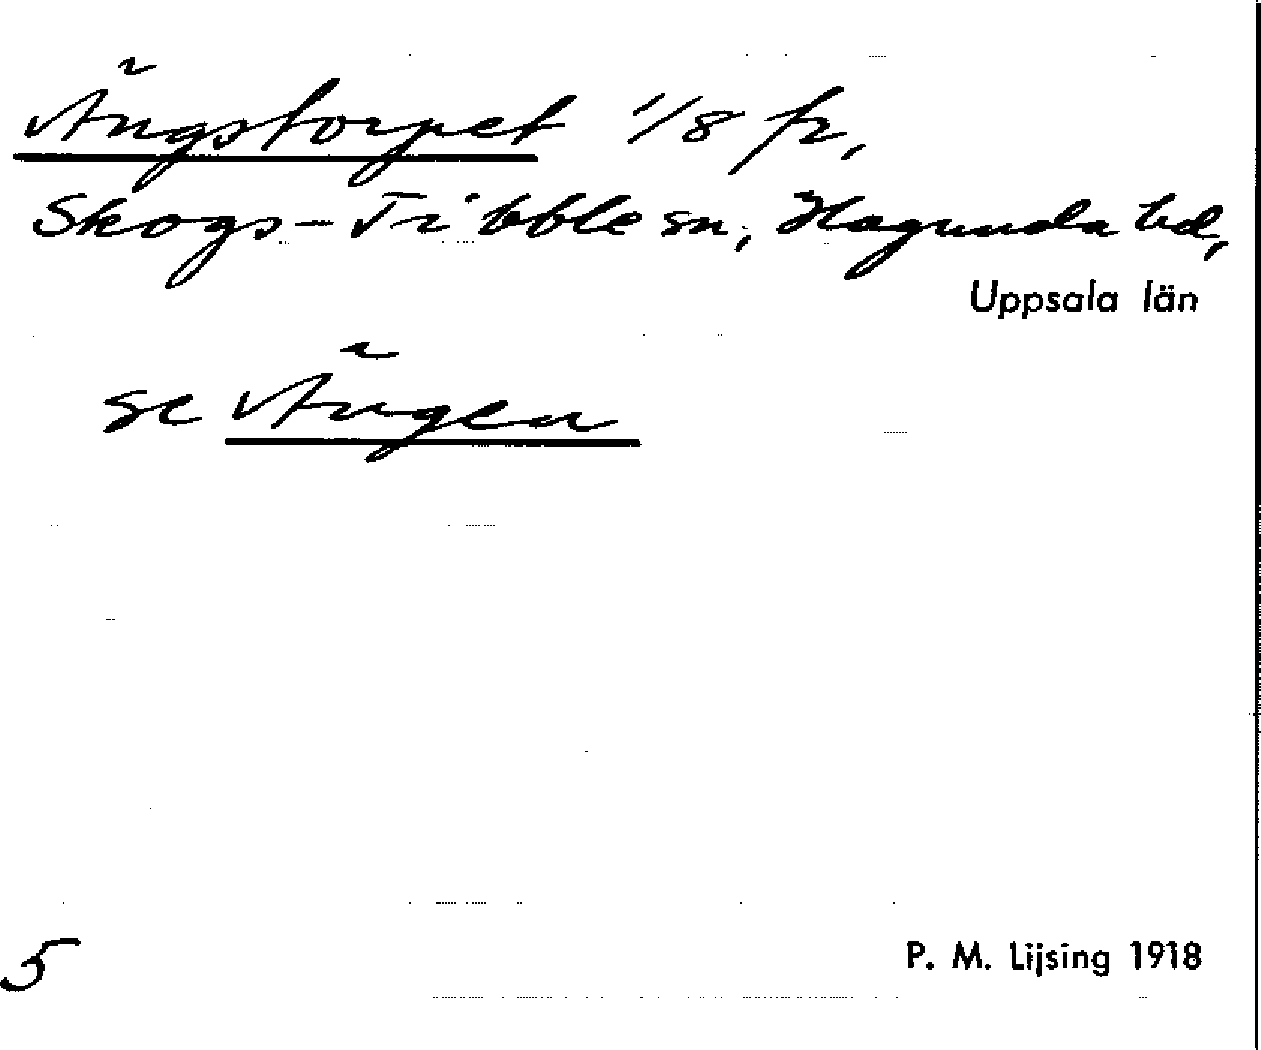 Ängstorpet 1/8 fr,
Skogs-Tibble sn, Hagunda hd,
Uppsala län
se Ängen
5
P. M. Lijsing 1918